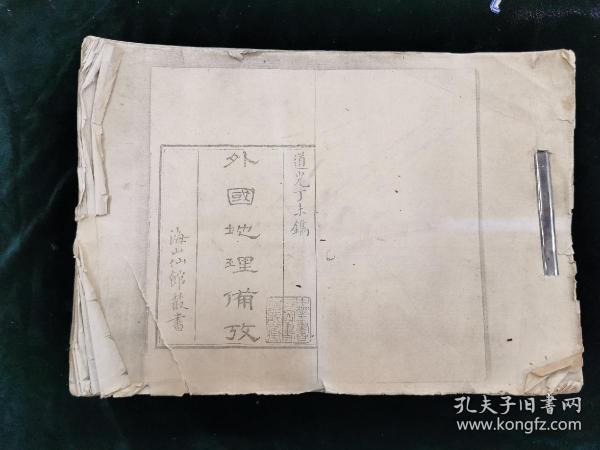 道光丁未鐫
外國地理備攷
海山仙館叢書
孔夫子旧书网
www.kongfz.com